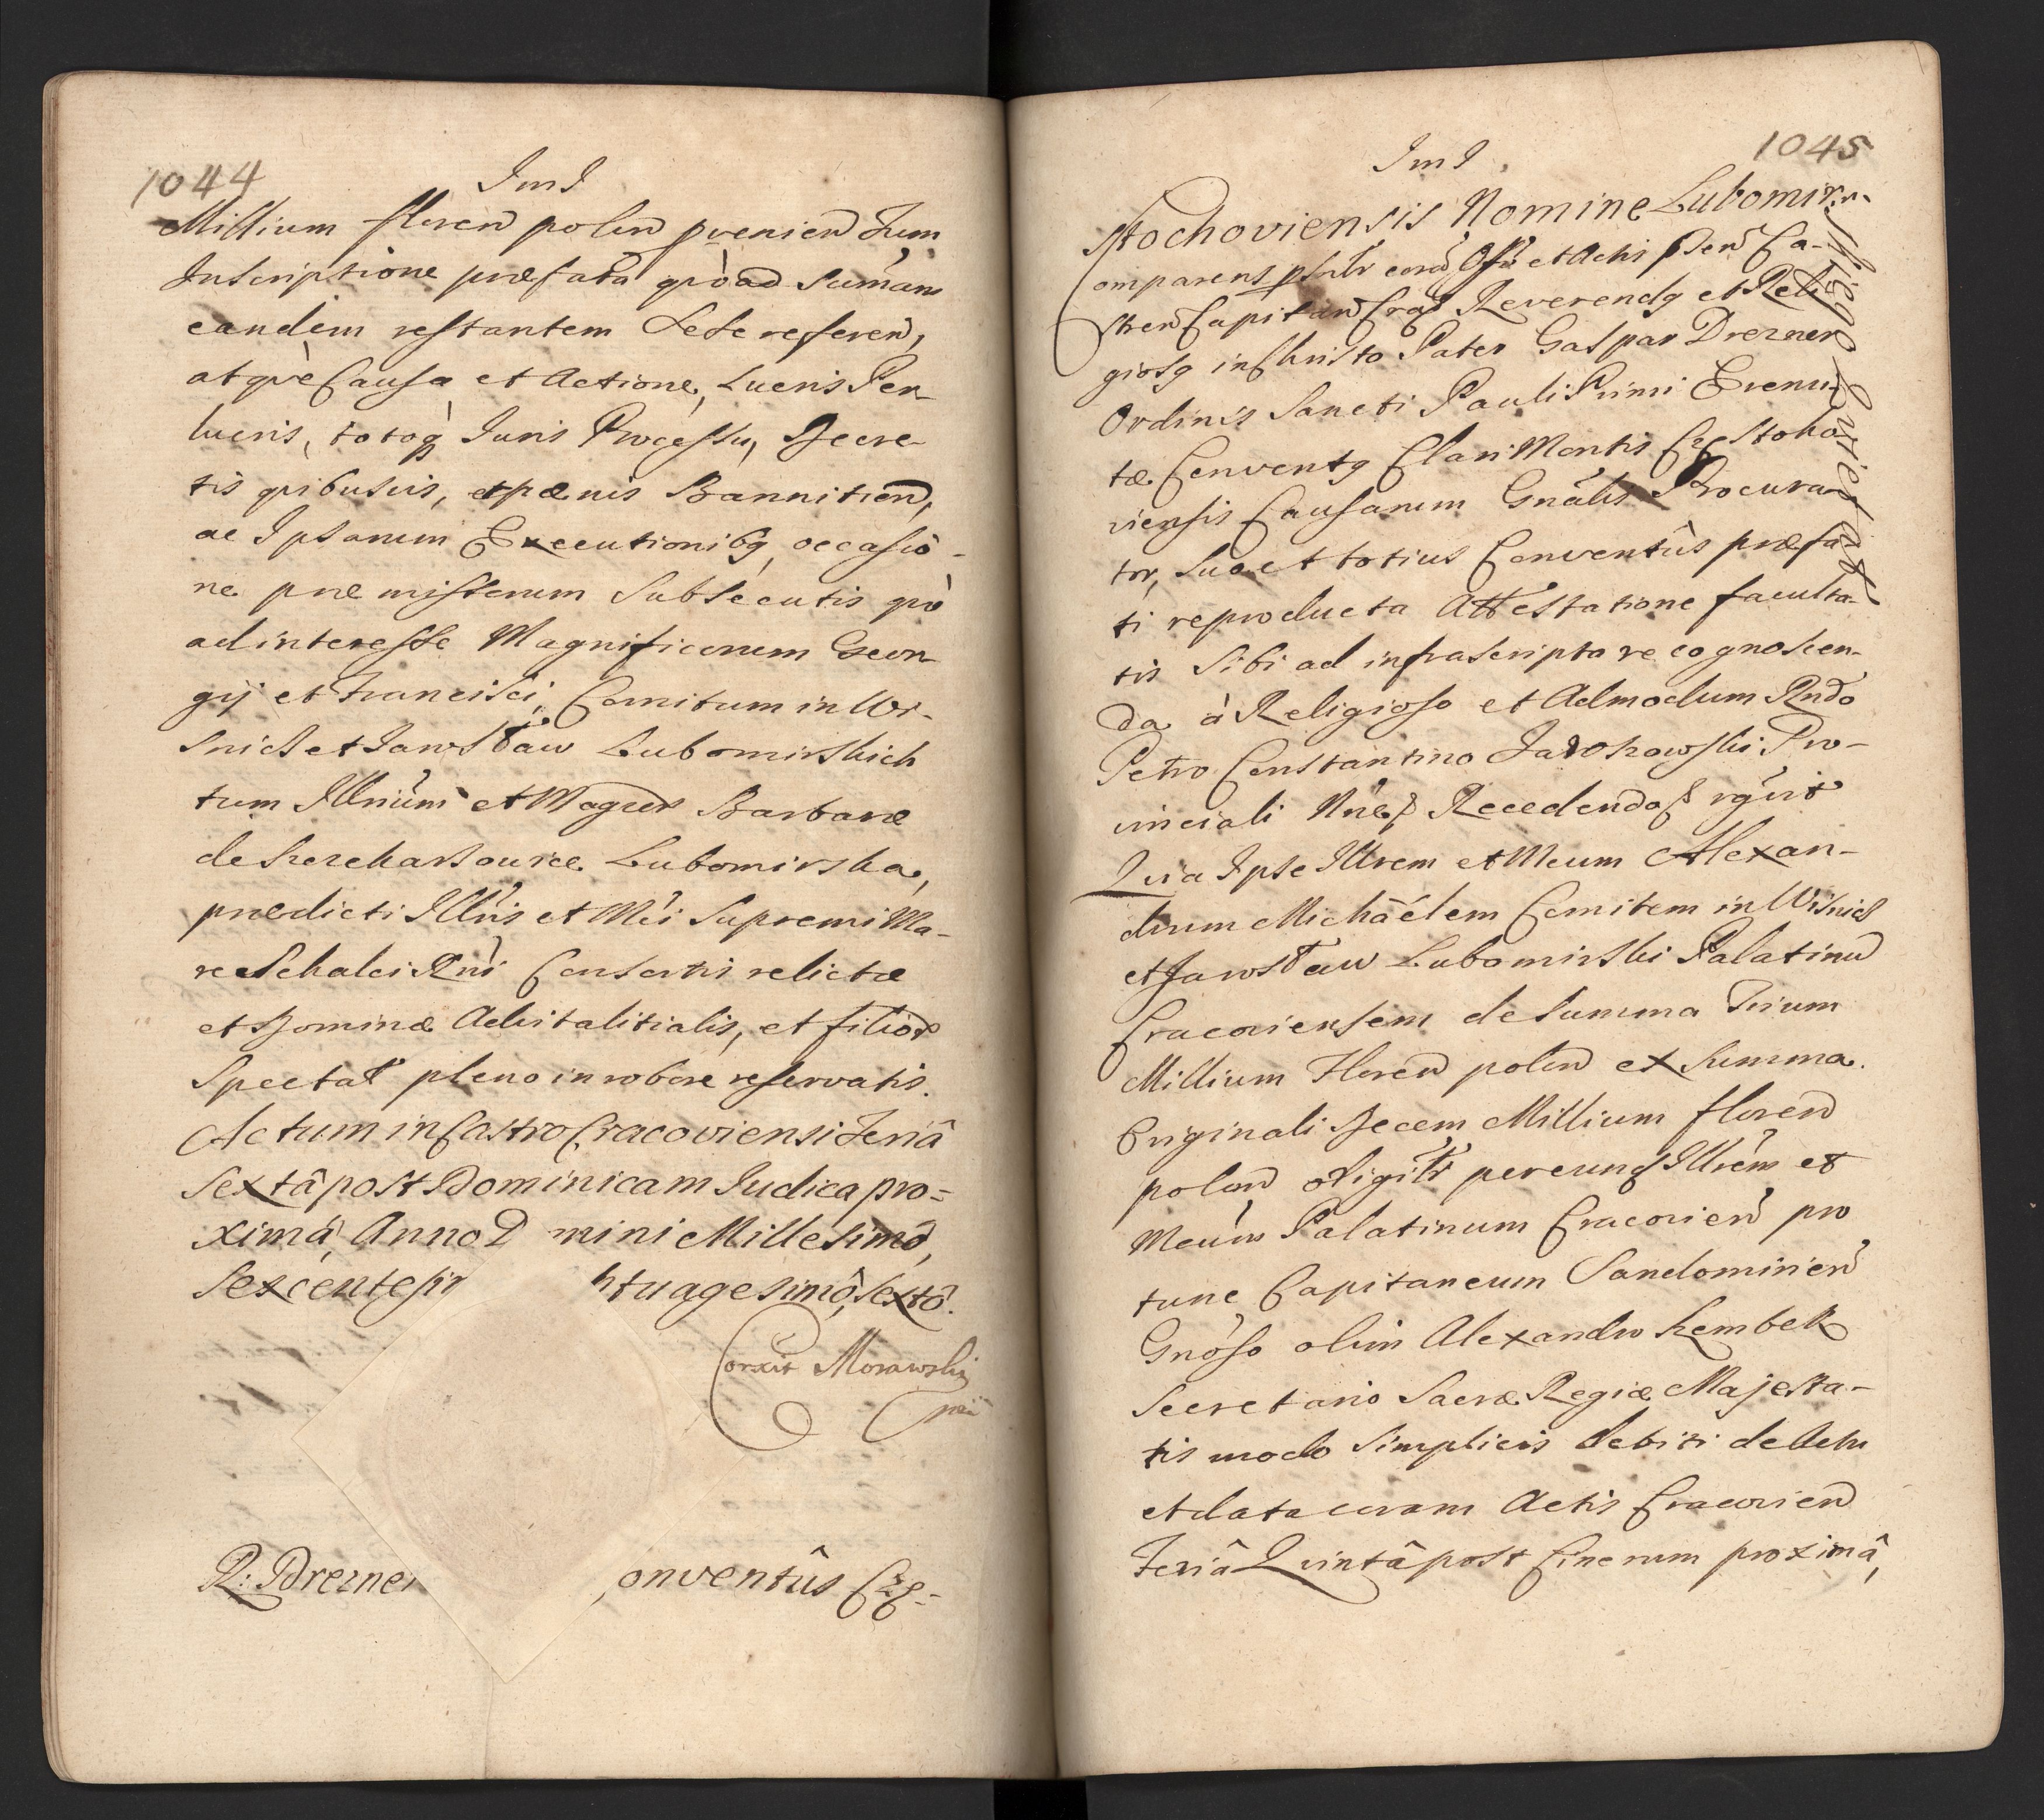 1044
ImI
Millium floren polon pvenien Tum
Inscriptione præfata quòad Sumam
eandem restantem Sese referen,
atquè Causa et Actione, Lucris Per
lucris, totoq Iuris Processu, Decre
tis quibusvis, et pænis Bannitien,
ac Ipsarum Executionibg, occasio-
ne præmissorum Subsecutis quò
ad interesse Magnificorum Geor
gij et Francisci, Comitum in Wi-
snicz et Iarosław Lubomirskich
tum Illrium et Magcæ Barbaræ
de Lubomirska,
prædicti Illris et Mci Supremi Ma-
reschalci Rni Consortis relictæ
et Dominæ Advitalitialis, et filior
Spectat pleno in robore reservatis.
Actum in Castro Cracoviensi Feriâ
Sextâ post Dominicam Iudica pro=
ximâ, Anno D mini Millesimô,
Sexcentesi tuagesimô, Sextô.
Corxit Morawski
mp
R: Drezner onventûs Cze-
1045
ImI
stochoviensis Nomine Lubomir
skiego Quietat
Comparens psnlr corã Offo et Actis psen Ca-
stren Capitan Crac Reverendg et Reli
giosg in Christo Pater Gaspar Drezner
Ordinis Sancti Pauli Primi Eremi
tæ Conventg Clari Montis Czestoho
viensis Causarum Gnalis Procura
tor, Suo et totius Conventûs præfa
ti reproducta Attestatione faculta-
tis Sibi ad infrascripta recognoscen-
da à Religioso et Admodum Rndo
Petro Constantino Jaroszewski Pro-
vinciali Recedendo rgvit
Quia Ipse Illrem et Mcum Alexan-
drum Michaélem Comitem in Wisnicz
et Jarosław Lubomirski Palatinu
Cracoviensem de Summa Trium
Millium Floren polon ex Summa
Originali Decem Millium floren
polon per eund Illrem et
Mcum Palatinum Cracovien pro
tunc Capitaneum Sandomirien
Gnoso olim Alexandro Szembek
Secretario Sacræ Regiæ Majesta-
tis modo Simplicis debiti
et data coram Actis Cracovien
Feriâ Quintâ post Cinerum proximâ,